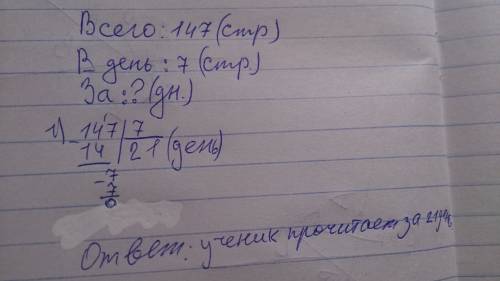 Всего: 147 (стр)
В день: 7 (стр)
За: ? (дн.)
1) 147 | 7
14 | 21 (день)
- 7
7
0
Ответ: ученик прочитает за 21